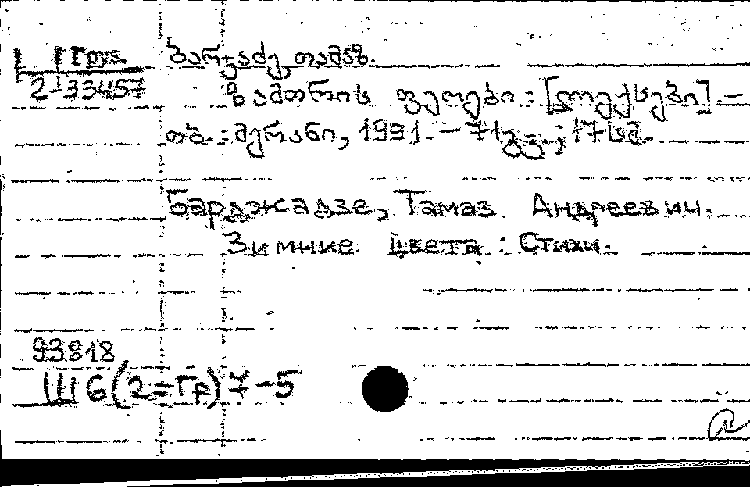 I Груз
2-33457
ბარჯაძე, თამაზ.
ზამთრის ფერები : [ლექსები] –
თბ. : მერანი, 1991. – 71გვ. ; 17სმ.
Барджадзе, Тамаз Андреевич.
Зимние цвета : Стихи.
93.818
Ш6(2=Гр)7-5